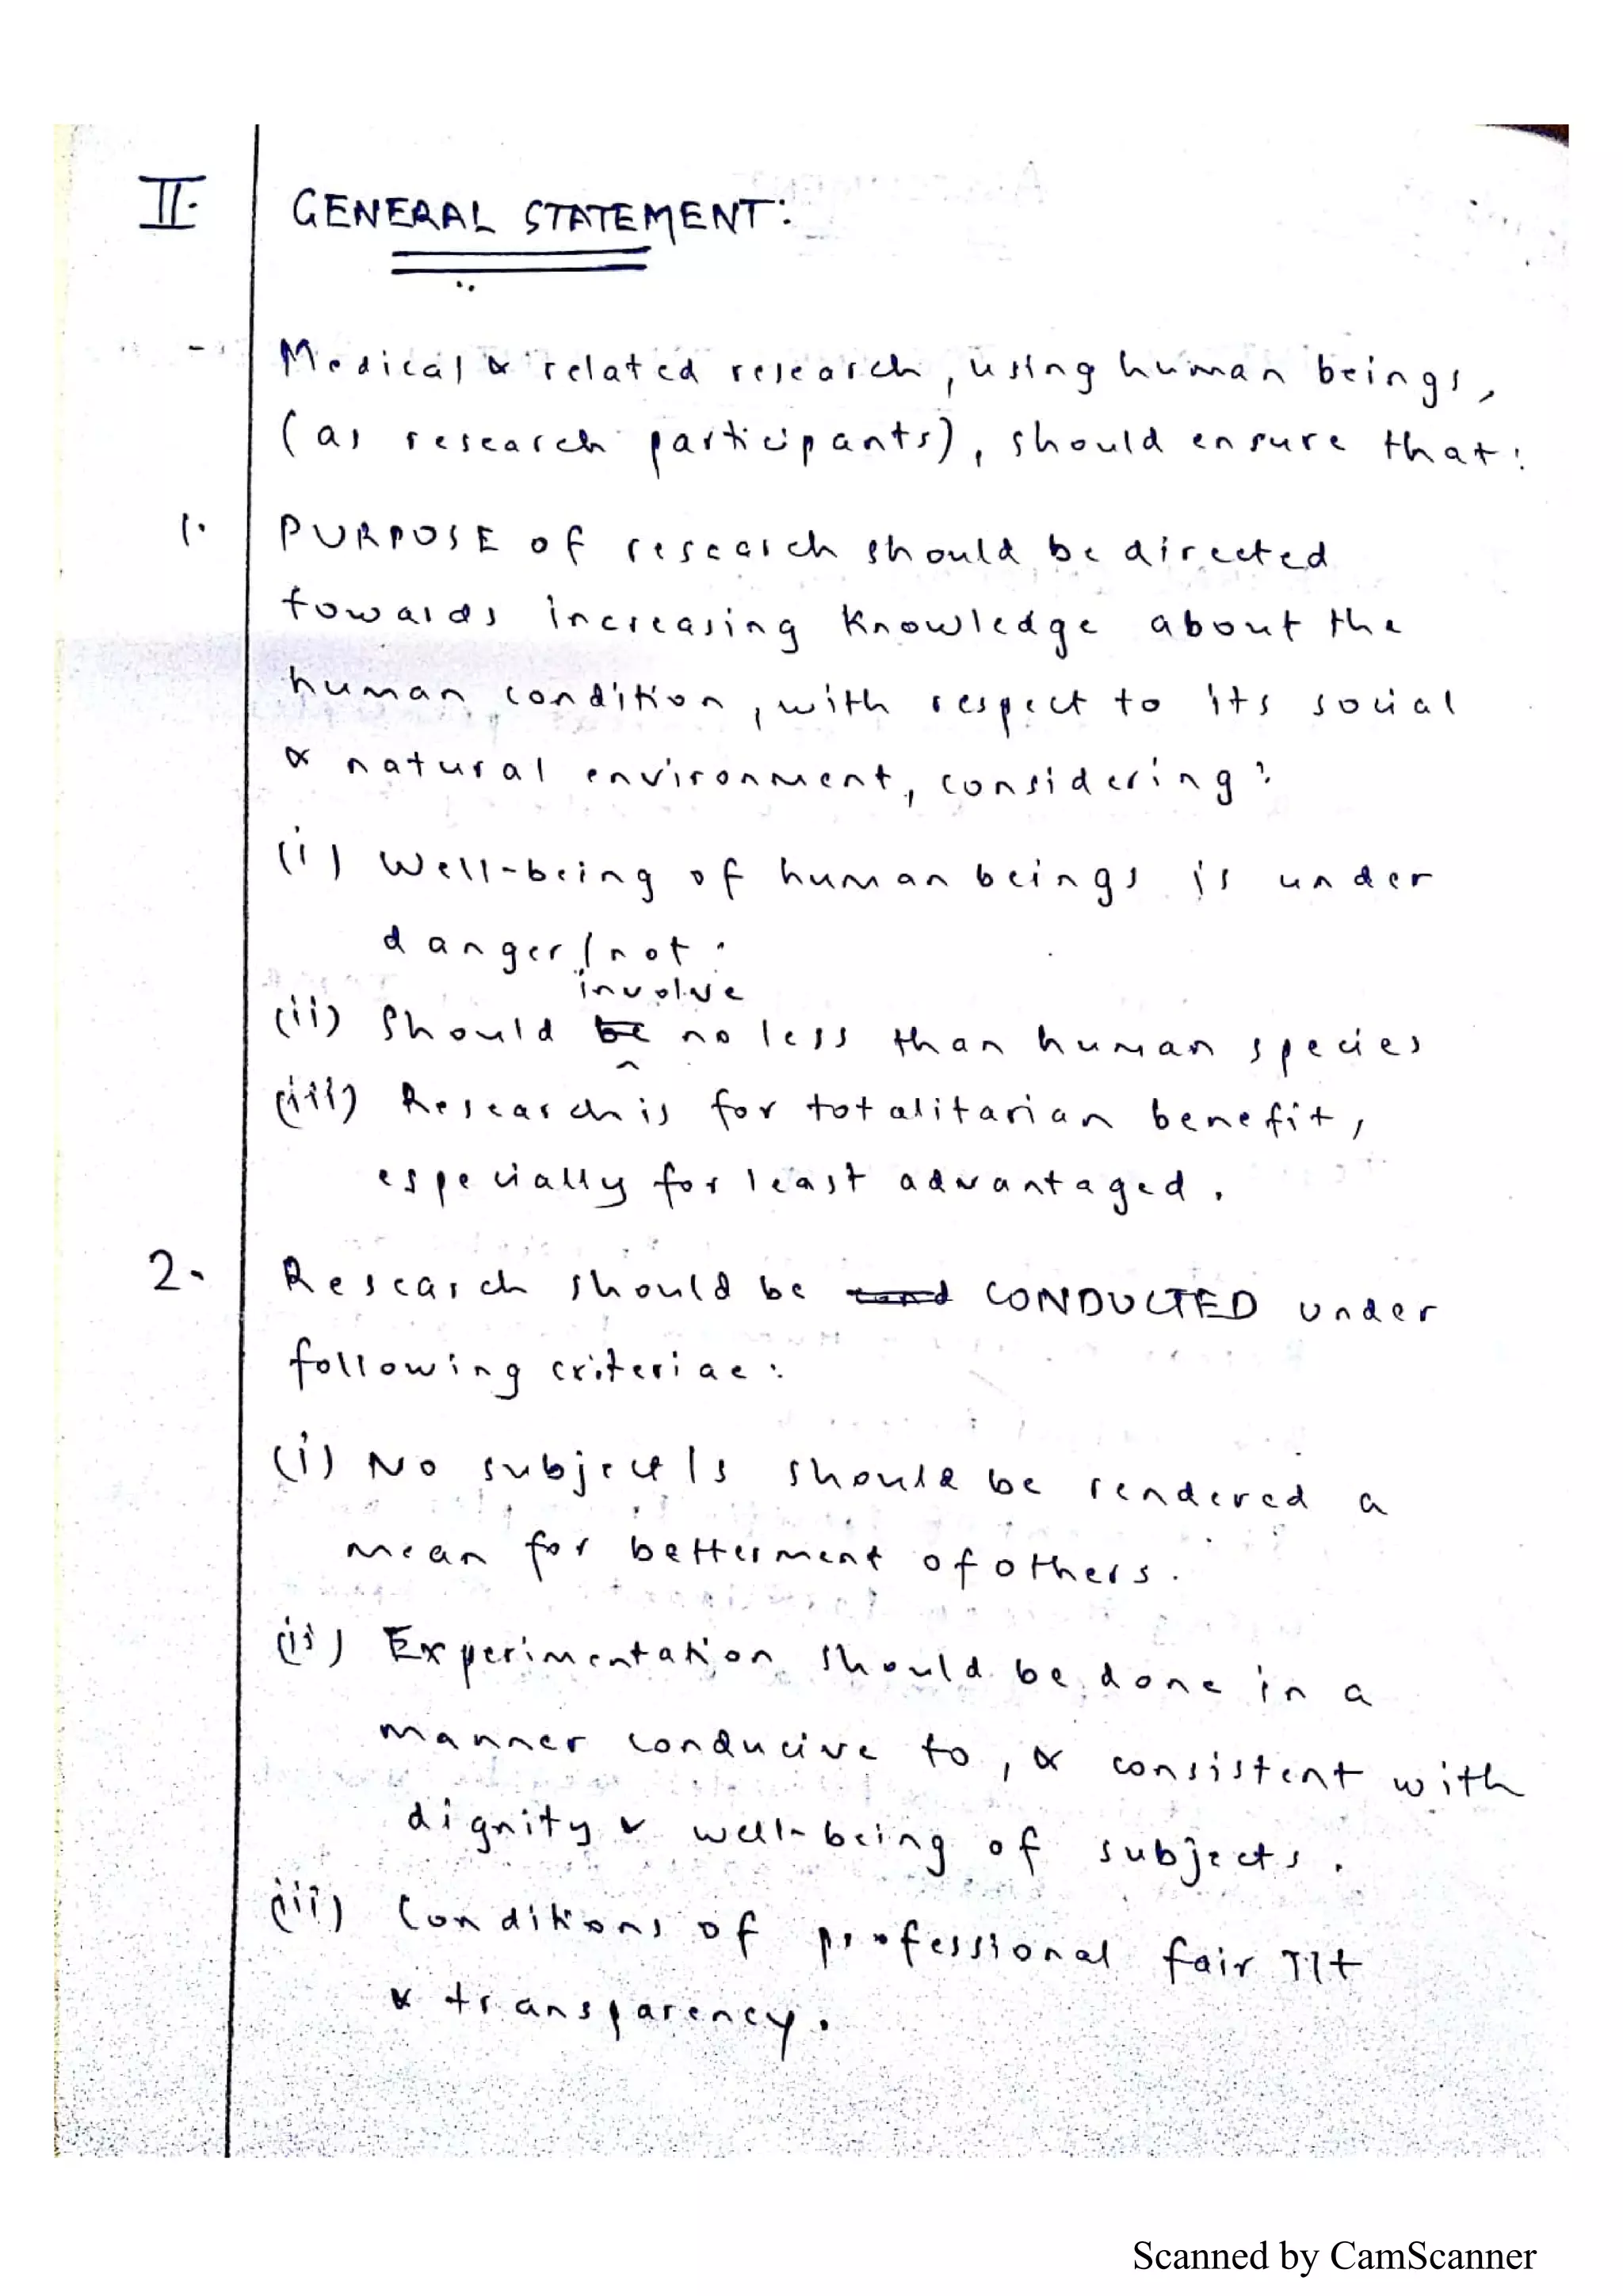 II. GENERAL STATEMENT:
- Medical & related research, using human beings,
(as research participants), should ensure that:
1. PURPOSE of research should be directed
towards increasing knowledge about the
human condition, with respect to its social
& natural environment, considering:
(i) Well-being of human beings is under
danger/not.
involve
(ii) Should be no less than human species
(iii) Research is for totalitarian benefit,
especially for least advantaged.
2. Research should be cond CONDUCTED under
following criteriae:
(i) No subject/s should be rendered a
mean for betterment of others.
(ii) Experimentation should be done in a
manner conducive to, & consistent with
dignity & well-being of subjects.
(iii) Conditions of professional fair T/t
& transparency.
Scanned by CamScanner